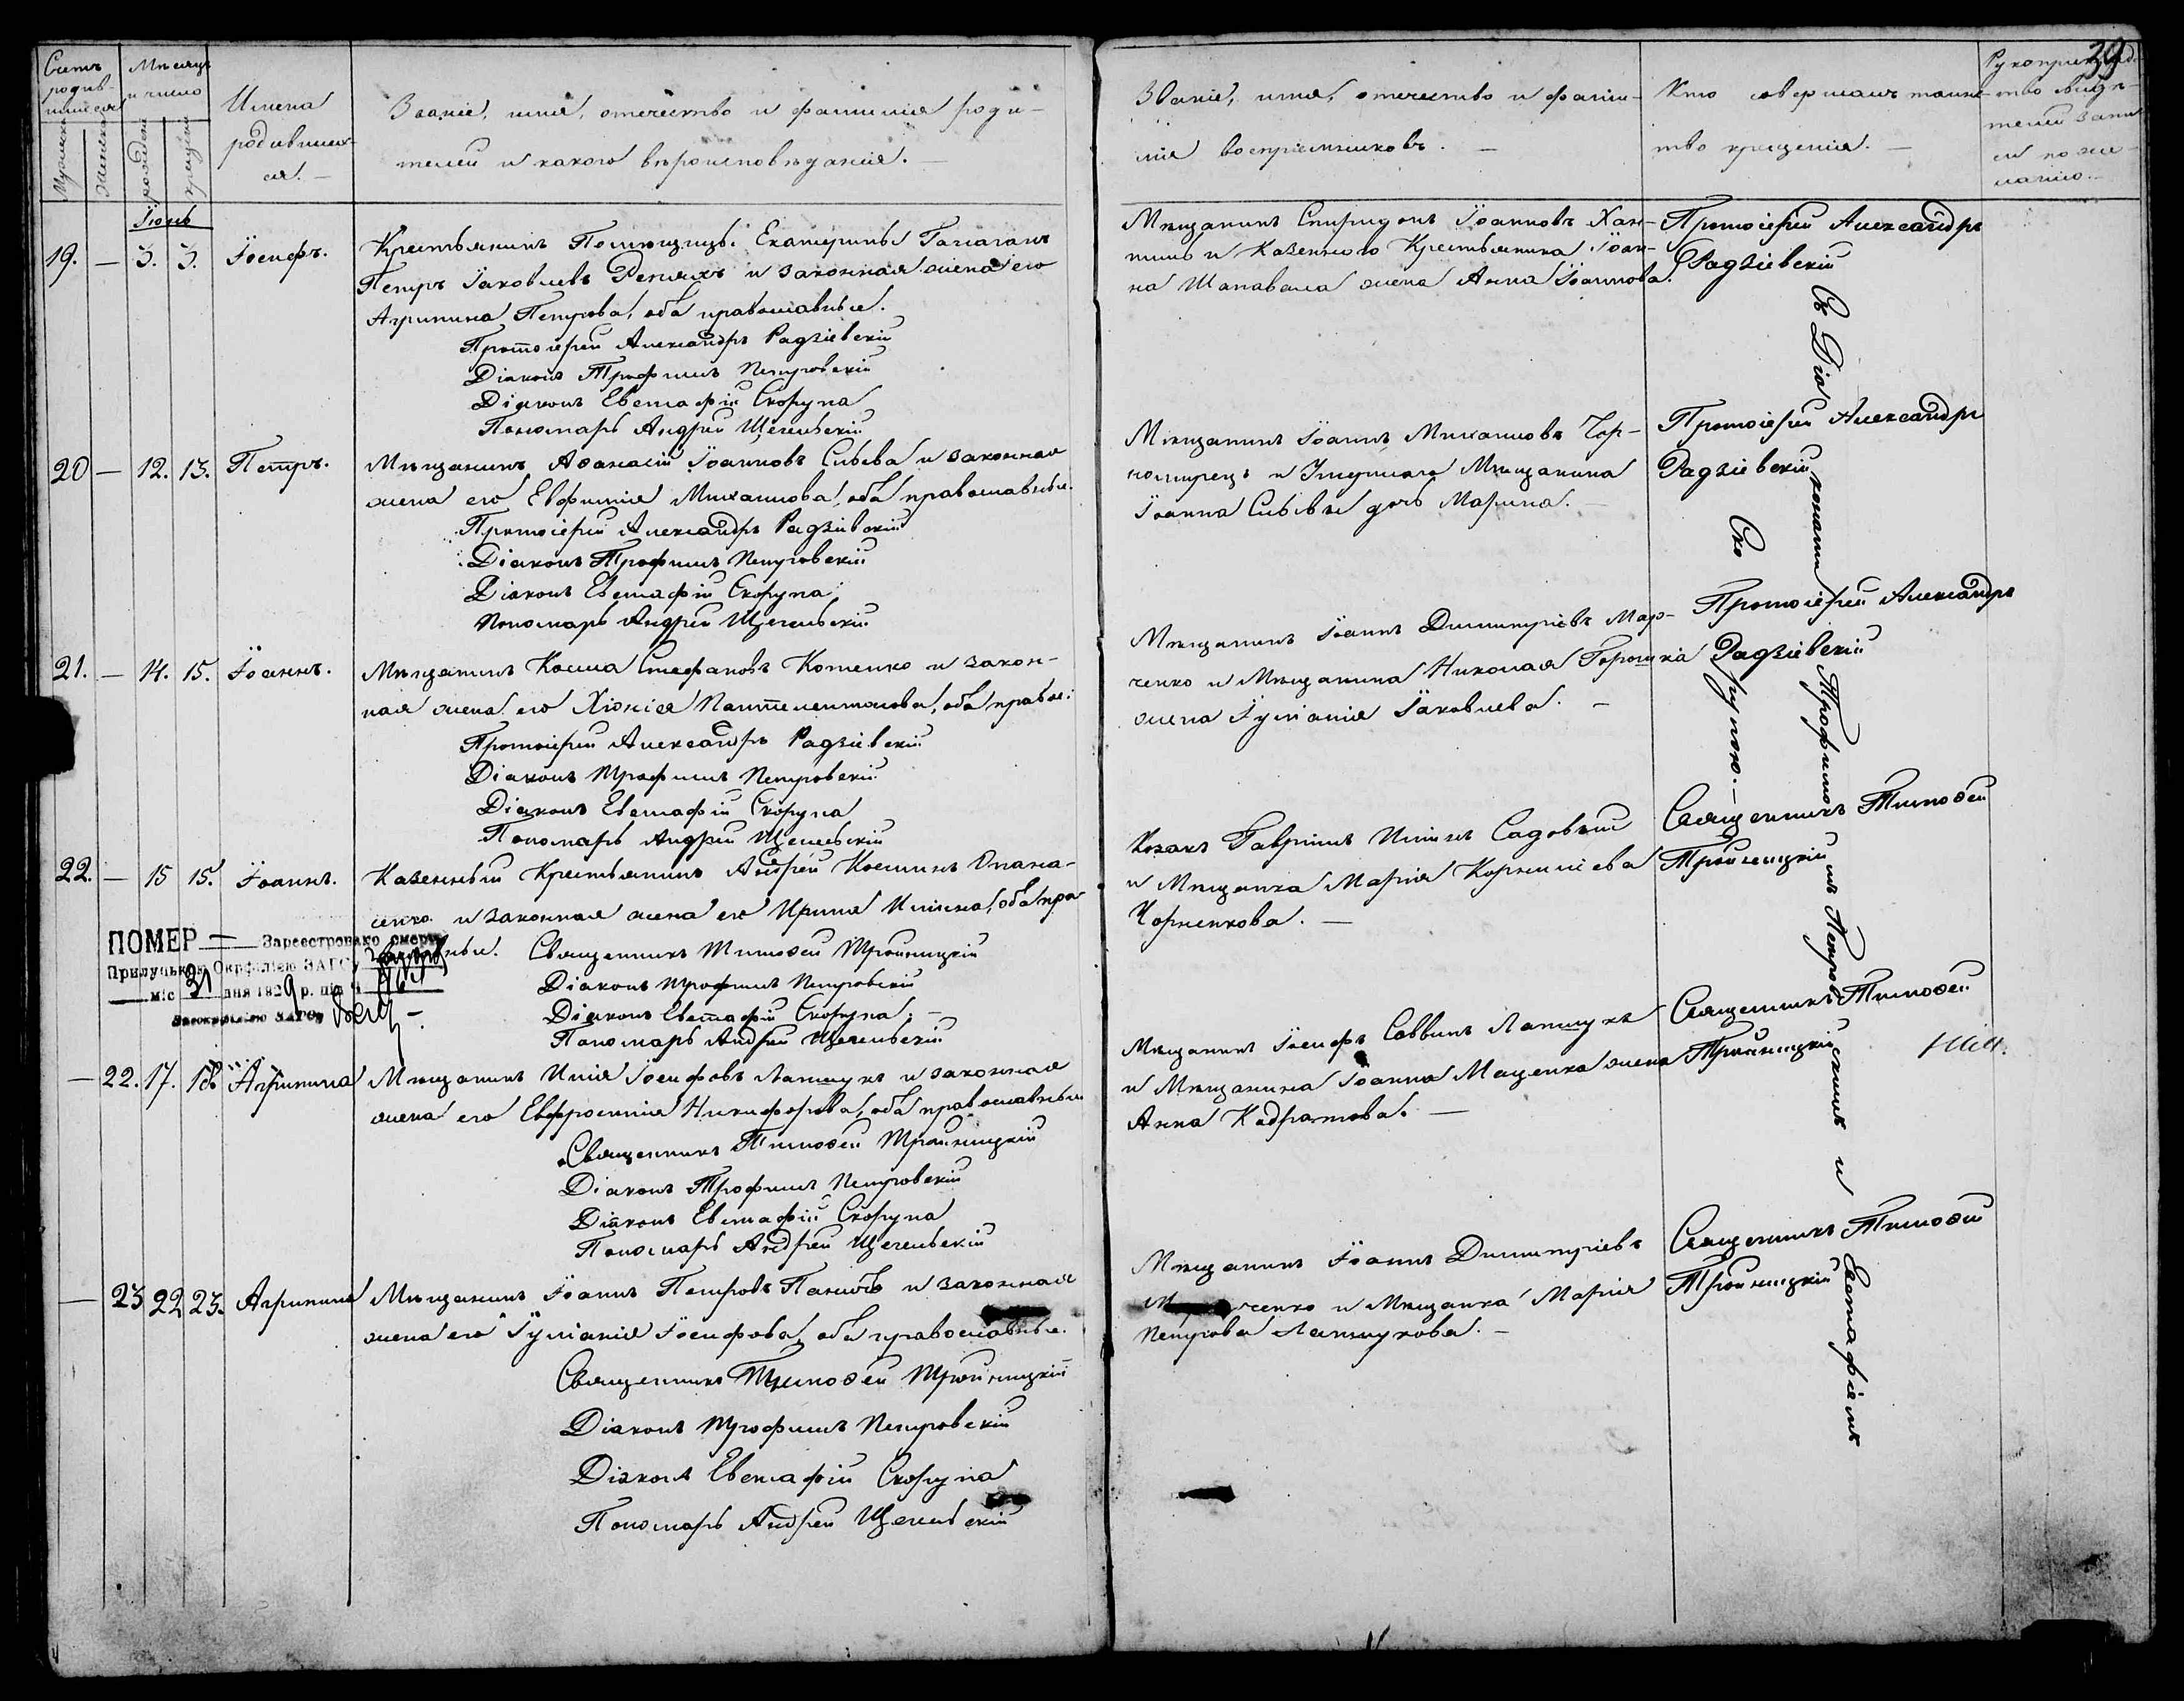 39
Счетъ родив-шихся
Мужеска
Женска
Мѣсяцъ и число
рожденія
крещенія
Имена родивших-ся. —
Званіе, имя, отечество и фамилія роди-
телей и какого вѣроисповѣданія. —
Званіе, имя, отечество и фами-
лія воспріемниковъ. —
Кто совершалъ таинс-
тво крещенія. —
Рукоприклад-
ство свидѣ-
телей запи-
си по же-
ланію. —
Іюнь
19. — 3. 3. Іосифъ.
Крестьянинъ Помѣщицы Екатерины Галаганъ
Петръ Іаковлевъ Репяхъ и законная жена его
Агрипина Петрова, оба православные.
Протоіерей Александръ Радзіевскій
Діаконъ Трофимъ Петровскій
Діаконъ Евстафій Скорупа
Пономарь Андрей Щегельскій
Мѣщанинъ Спиридонъ Іоанновъ
и Казеннаго Крестьянина Іоан-
на Шаповала жена Анна Іоаннова.
Протоіерей Александръ
Радзіевскій
20 — 12. 13. Петръ.
Мѣщанинъ Аѳанасій Іоанновъ Сывева и законная
жена его Евфимія Михаилова, оба православные.
Протоіерей Александръ Радзіевскій
Діаконъ Трофимъ Петровскій
Діаконъ Евстафій Скорупа
Пономарь Андрей Щегельскій
Мѣщанинъ Іоаннъ Михаиловъ Чор-
и Умершаго Мѣщанина
Іоанна дочь Марина. —
Протоіерей Александръ
Радзіевскій
21. — 14. 15. Іоаннъ.
Мѣщанинъ Косма Стефановъ Котенко и закон-
ная жена его Хіонія Пантелеимонова, оба правос:
Протоіерей Александръ Радзіевскій
Діаконъ Трофимъ Петровскій
Діаконъ Евстафій Скорупа
Пономарь Андрей Щегельскій
Мѣщанинъ Іоаннъ Димитріевъ Мар-
ченко и Мѣщанина Николая Горошка
жена Іуліанія Іаковлева. —
Протоіерей Александръ
Радзіевскій
22. — 15 15. Іоаннъ.
Казенный Крестьянинъ Андрей Косминъ Опана-
сенко и законная жена его Ирина Илиина, оба пра-
вославные. Священникъ Тимоѳей Тройницкій
Діаконъ Трофимъ Петровскій
Діаконъ Евстафій Скорупа. —
Пономарь Андрей Щегельскій
Козакъ Гавріилъ Илиинъ Садовый
и Мѣщанка Марія Корниліева
Чорненкова. —
Священникъ Тимоѳей
Тройницкій
ПОМЕР — Зареєстровано смерть
Прилуцькою Окрфілією ЗАГСу
міс. 31 дня 1929 р. під Ч
—22. 17. 18. Агрипина
Мѣщанинъ Илія Іосифовъ Латшукъ и законная
жена его Евфросинія Никифорова, оба православные
Священникъ Тимоѳей Тройницкій
Діаконъ Трофимъ Петровскій
Діаконъ Евстафій Скорупа
Пономарь Андрей Щегельскій
Мѣщанинъ Іосифъ Саввинъ Латшукъ
и Мѣщанина Іоанна Маценка жена
Анна Кодратова. —
Священникъ Тимоѳей
Тройницкій
— 23 22 23. Агрипина
Мѣщанинъ Іоаннъ Петровъ и законная
жена его Іуліанія Іосифова, оба православные.
Священникъ Тимоѳей Тройницкій
Діаконъ Трофимъ Петровскій
Діаконъ Евстафій Скорупа
Пономарь Андрей Щегельскій
Мѣщанинъ Іоаннъ Димитріевъ
ченко и Мѣщанка Марія
Петрова Латшукова. —
Священникъ Тимоѳей
Тройницкій
Съ Діаконами Трофимомъ Петровскимъ и Евстафіемъ
Скорупою. —